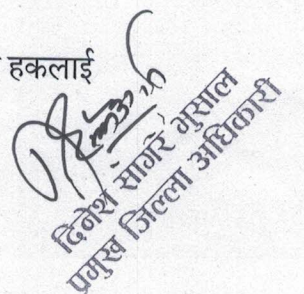 हकलाई
दिनेश सागर भुसाल
प्रमुख जिल्ला अधिकारी